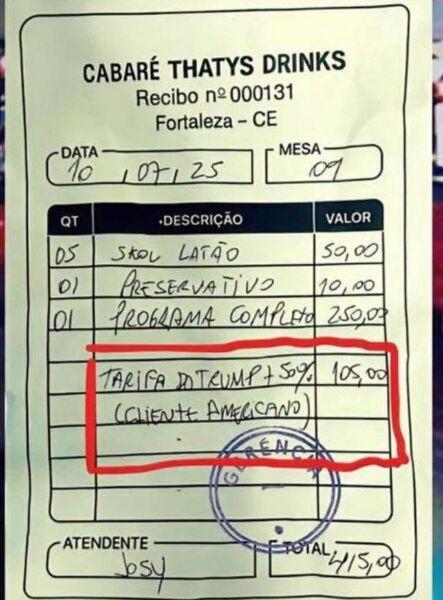 CABARÉ THATYS DRINKS
Recibo nº 000131
Fortaleza – CE
DATA
10 , 07 , 25
MESA
09
QT DESCRIÇÃO VALOR
05 SKOL LATÃO 50,00
01 PRESERVATIVO 10,00
01 PROGRAMA COMPLETO 250,00
TARIFA DO TRUMP + 50% 105,00
(CLIENTE AMERICANO)
GERÊNCIA
ATENDENTE
Josy
TOTAL
415,00